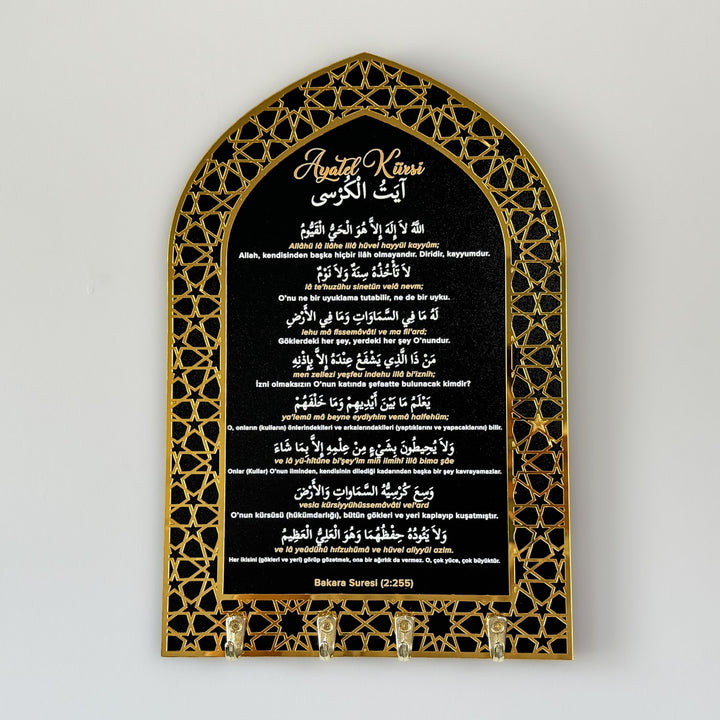 Ayatel Kürsi
آيَتُ الْكُرْسى
اللَّهُ لاَ إِلَهَ إِلاَّ هُوَ الْحَيُّ الْقَيُّومُ
Allâhü lâ ilâhe illâ hüvel hayyül kayyûm;
Allah, kendisinden başka hiçbir ilâh olmayandır. Diridir, kayyumdur.
لاَ تَأْخُذُهُ سِنَةٌ وَلاَ نَوْمٌ
lâ te'huzühu sinetün velâ nevm;
O'nu ne bir uyuklama tutabilir, ne de bir uyku.
لَهُ مَا فِي السَّمَاوَاتِ وَمَا فِي الأَرْضِ
lehu mâ fissemâvâti ve ma fil'ard;
Göklerdeki her şey, yerdeki her şey O'nundur.
مَنْ ذَا الَّذِي يَشْفَعُ عِنْدَهُ إِلاَّ بِإِذْنِهِ
men zellezi yeşfeu indehu illâ bi'iznih;
İzni olmaksızın O'nun katında şefaatte bulunacak kimdir?
يَعْلَمُ مَا بَيْنَ أَيْدِيهِمْ وَمَا خَلْفَهُمْ
ya'lemü mâ beyne eydiyhim vemâ halfehüm;
O, onların (kulların) önlerindekileri ve arkalarındakileri (yaptıklarını ve yapacaklarını) bilir.
وَلاَ يُحِيطُونَ بِشَيْءٍ مِنْ عِلْمِهِ إِلاَّ بِمَا شَاءَ
ve lâ yü-hîtûne bi'şey'im min ilmihî illâ bima şâe
Onlar (Kullar) O'nun ilminden, kendisinin dilediği kadarından başka bir şey kavrayamazlar.
وَسِعَ كُرْسِيُّهُ السَّمَاوَاتِ وَالأَرْضَ
vesia kürsiyyühüssemâvâti vel'ard
O'nun kürsüsü (hükümdarlığı), bütün gökleri ve yeri kaplayıp kuşatmıştır.
وَلاَ يَئُودُهُ حِفْظُهُمَا وَهُوَ الْعَلِيُّ الْعَظِيمُ
ve lâ yeûdühû hıfzuhümâ ve hüvel aliyyül azim.
Her ikisini (gökleri ve yeri) görüp gözetmek, ona bir ağırlık da vermez. O, çok yüce, çok büyüktür.
Bakara Suresi (2:255)